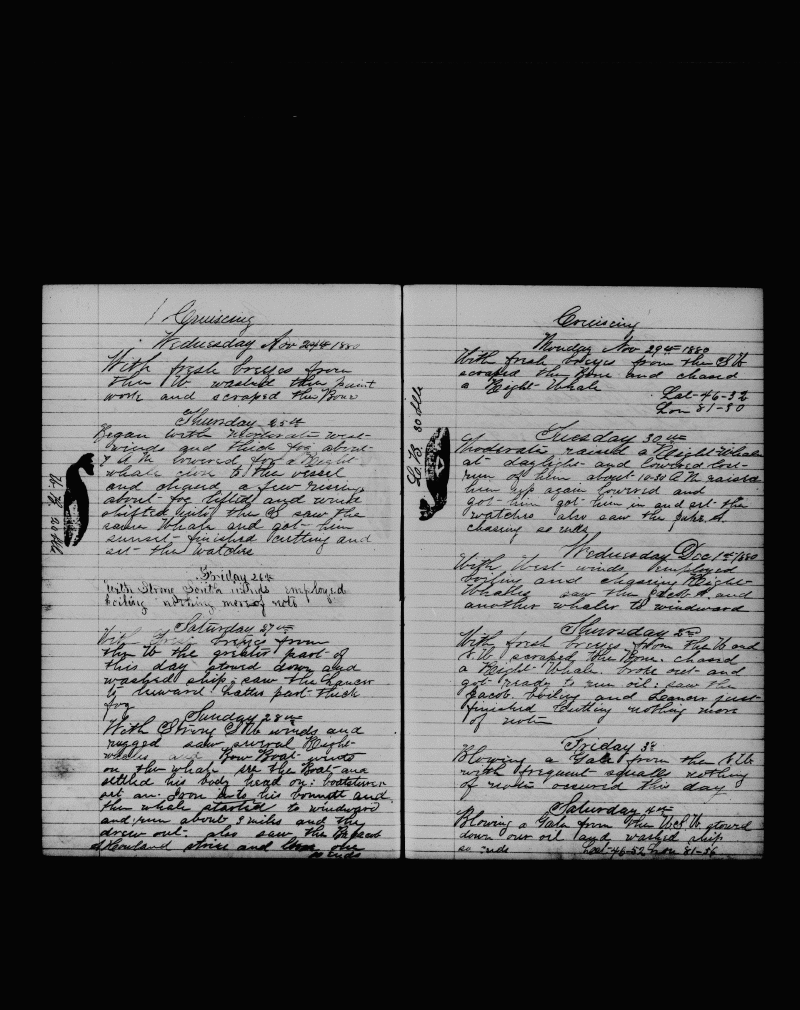 Cruiscing
Wednesday Nov 24th 1880
With fresh breezes from
the W washed the paint
work and scraped the Bone
Thursday 25th
Began with moderate west
winds and thick fog about
7 A M lowered for a Right
whale run to the vessel
and chased a few risins
about fog lifted and wind
shifted into the S saw the
same Whale and got him
sunset finished cutting and
set the watches
Friday 26th
With Strong South winds employed
boiling nothing more of note
Saturday 27th
With fresh breezes from
the W the greater part of
this day stowed down and
washed ship: saw the Leancer
to leward latter part thick
fog
Sunday 28th
With Strong S W winds and
rugged saw several Right
whales and Bow Boat went
on the whale the Boat and
settled his body head on: boatsteerer
set an Iron into his bonnett and
the whale started to windward
and run about 3 miles and the
drew out also saw the Bk Jacob
A Howland strice and one
so ends
80 bbls
Cruiscing
Monday Nov 29th 1880
With fresh breezes from the S W
scraped the Bone and chased
a Right Whale
Lat 46-32
Lon 81-30
Tuesday 30th
Moderate raised a Right Whale
at daylight and lowered lost
run of him about 10-30 A M raised
him up again lowered and
got him got him in and set the
watches also saw the
chasing so ends
Wednesday Dec 1st 1880
With West winds employed
boiling and chasing Right
Whales saw the Jacob A and
another whaler to windward
Thursday 2nd
With fresh breezes from the W and
S.W. scraped the Bone. chased
a Right Whale. broke out and
got ready to run oil: saw the
Jacob boiling and Leancer just
finished Cutting nothing more
of note
Friday 3d
Blowing a Gale from the S W
with frequent squalls nothing
of note occured this day
Saturday 4th
Blowing a Gale from the W.S.W. stowed
down our oil and washed ship
so ends Lat 46-52 Lon 81-56